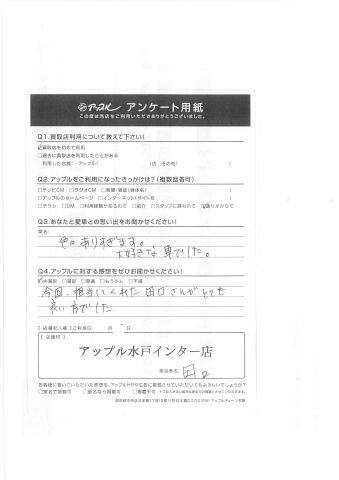 アップル アンケート用紙
この度は当店をご利用いただきありがとうございました。
Q1.買取店利用について教えて下さい!
☑買取店を初めて利用
□過去に買取店を利用したことがある
利用した店舗: アップル( )店 その他( )
Q2.アップルをご利用になったきっかけは?(複数回答可)
□テレビCM □ラジオCM □新聞・雑誌(媒体名: )
□アップルのホームページ □インターネット(サイト名 )
□チラシ □DM □利用経験があるので □紹介 □スタッフに誘われて ☑通りがかりで
Q3.あなたと愛車との思い出をお聞かせください!
車名:
色々ありすぎます。
大好きな車でした。
Q4.アップルに対する感想をぜひお聞かせください!
☑大満足 □満足 □普通 □もう少し □不満
今回、担当してくれた田口さんがとても
良い方でした
【店舗記入欄】ご利用日: 月 日
【店舗印】
アップル水戸インター店
担当者名 田口
お客様に書いていただいた感想を、アップルHPや広告に掲載させていただいてもよろしいでしょうか?
□実名で掲載可 □匿名なら掲載可 □掲載不可